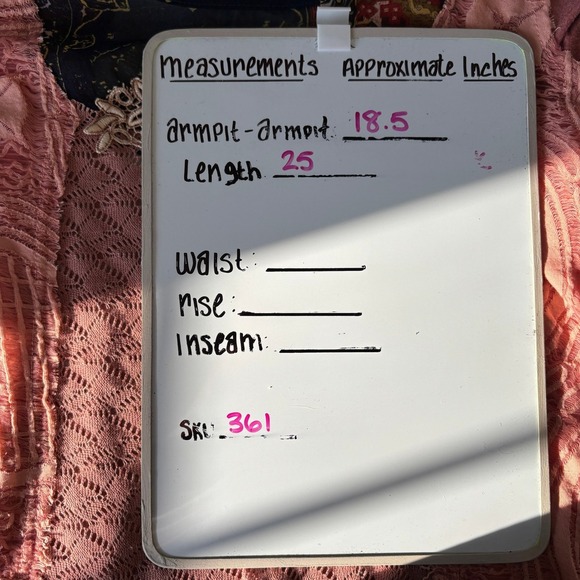 measurements Approximate Inches
armpit-armpit: 18.5
Length 25
waist:
rise:
Inseam:
SKU 361